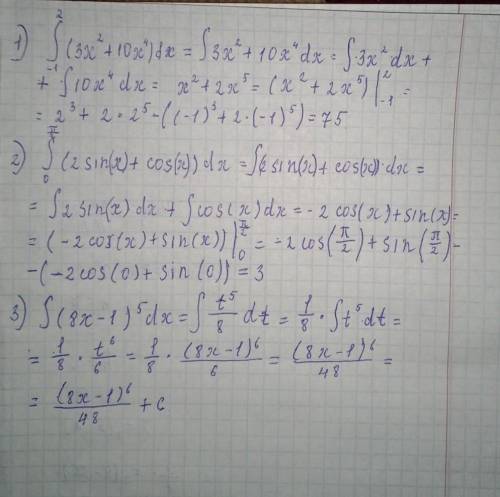 1) ∫₋₁² (3x² + 10x⁴) dx = ∫ 3x² + 10x⁴ dx = ∫ 3x² dx +
+ ∫ 10x⁴ dx = x² + 2x⁵ = (x² + 2x⁵) |₋₁² =
= 2³ + 2 · 2⁵ - ((-1)³ + 2 · (-1)⁵) = 75
2) ∫₀^(π/2) (2 sin(x) + cos(x)) dx = ∫(2 sin(x) + cos(x)) dx =
= ∫ 2 sin(x) dx + ∫ cos(x) dx = - 2 cos(x) + sin(x) =
= (-2 cos(x) + sin(x)) |₀^(π/2) = -2 cos(π/2) + sin(π/2) -
- (-2 cos(0) + sin(0)) = 3
3) ∫ (8x - 1)⁵ dx = ∫ t⁵/8 dt = 1/8 · ∫ t⁵ dt =
= 1/8 · t⁶/6 = 1/8 · (8x-1)⁶/6 = (8x-1)⁶/48 =
= (8x-1)⁶/48 + c